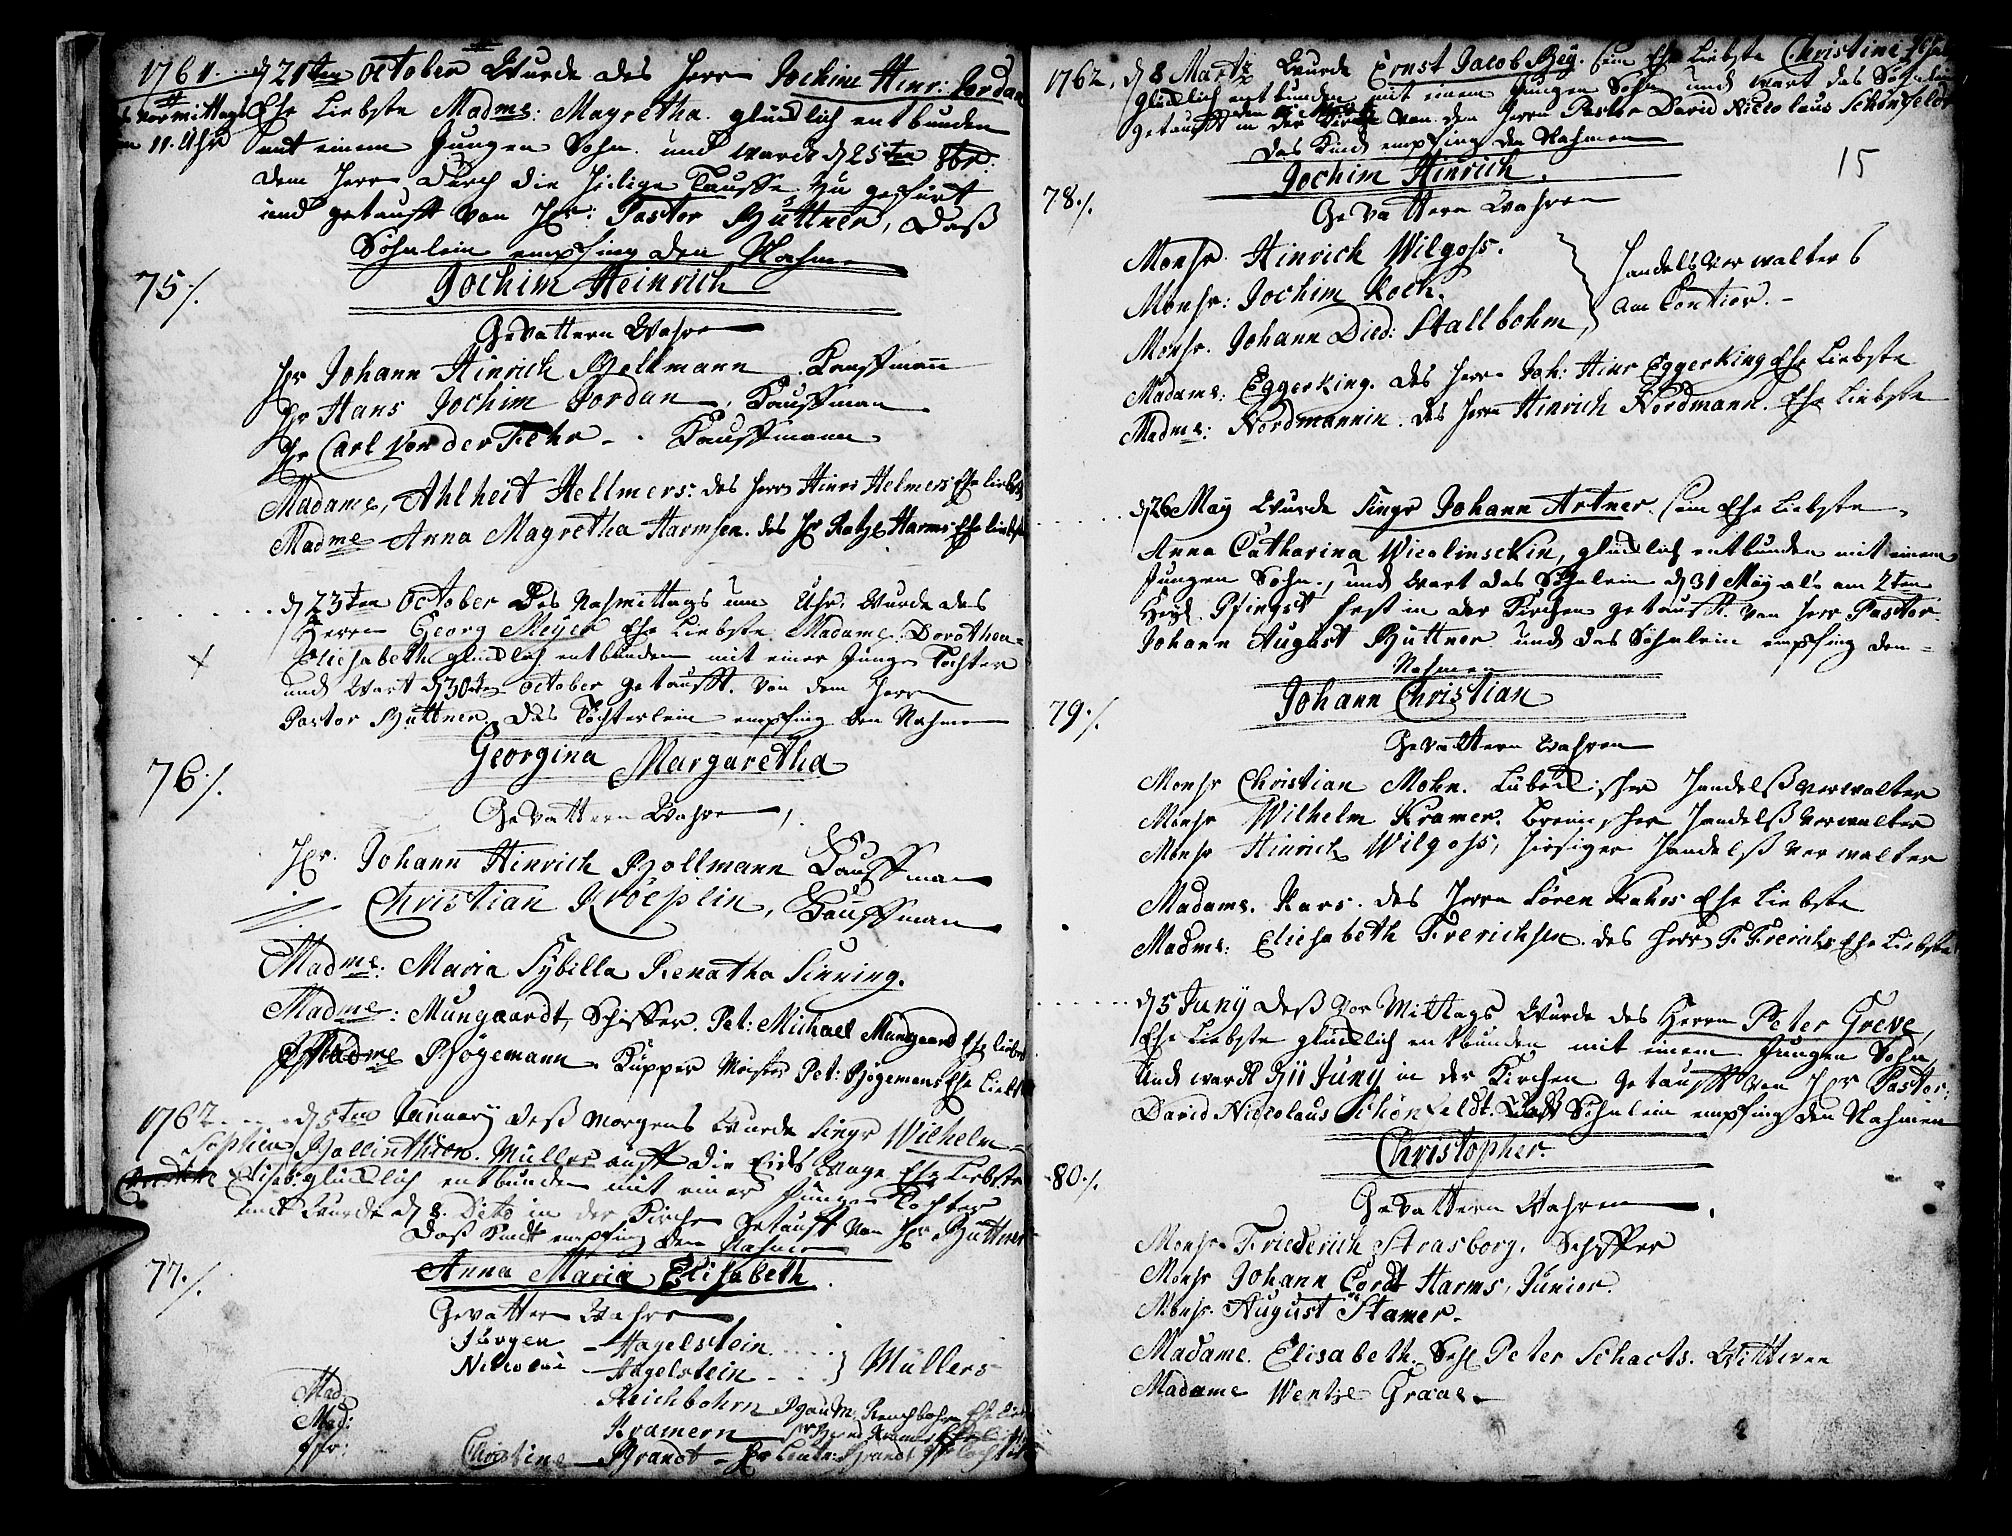 1761. d 21ten October Wurde des Herrn Jochim Hinr: Jordan
vormittags Ehe Liebste Madme: Magretha. glücklich entbunden
11. Uhr mit einem Jungen Sohn. und wardt d 25ten 8br:
dem Herrn durch die Heilige Tauffe zu geführt
und getaufft von Hr: Pastor Büttner, daß
Söhnlein empfing den Nahmen
75./. Jochim Heinrich
Gevattern Wahren
Hr Johann Hinrich Bollmann Kauffmann
Hr Hans Jochim Jordan, Kauffman
Hr Carl Von der Fehr - Kauffmann
Madame, Ahlheit Hellmers: des Herrn Hinr: Helmers Ehe Liebste
Madme Anna Magretha Harmsen. des Hr Harms Ehe Liebste
d 23ten October Des Nachmittags um Uhr. Wurde des
Herrn Georg Meyer Ehe Liebste. Madame. Dorothea
Eliesabeth glücklich entbunden mit einer Jungen Tochter
und Wart d 30ten October getaufft. von dem Herrn
Pastor Büttner. das Töchterlein empfing den Nahmen
76./. Georgina Margaretha
Gevattern Wahren,
Hr. Johann Hinrich Bollmann Kauffman
Christian Kröeplin, Kauffman
Madme: Maria Sybilla Renatha Sinning.
Madme: Mungaardt, Schiffer. Pet: Michael Mungaard Ehe Liebste
Madme Bögemann. Küpper Meister Pet: Bögemans Ehe Liebste
1762. d 5ten January deß Morgens Wurde Singr Wilhelm
Sophia Müller auff die Ehe Liebste
Elisab: glücklich entbunden mit einer Jungen Tochter
und Wurde d 8. Dito in der Kirche getaufft von Hr. Büttner
daß Kindt empfing den Nahmen
77./. Anna Maria Elisabeth.
Gevattern Wahren
Jürgen - Hagelstein
Nicolai - Hagelstein } Müllers
Mad. Reichbohrn Reichbohrn Ehe Liebste
Mad: Kramern
Jfr: Christine Brandt - Brandt
1762. d 8 Martz Wurde Ernst Jacob Bey. sein Ehe Liebste Christine
Glücklich entbunden mit einem Jungen Sohn und wart das Söhnlein
getaufft in der Kirche von dem Herrn Pastor David Nicolaus Schönfeldt
das Kindt empfing den Nahmen
15
Jochim Hinrich.
78./. Gevattern Wahren
Monsr. Hinrich Wilgohs.
Monsr: Jochim Koch.
Monsr. Johann Died: Stallbohm,
Handels Verwalters
am Contior. -
Madame. Eggerking. des Herrn Joh: Hinr Eggerking Ehe Liebste
Madme: Nordmannin. des Herrn Hinrich Nordmann. Ehe Liebste
d 26 May Wurde Singr Johann Artner. sein Ehe Liebste,
Anna Catharina Wicolinsckin, glücklich entbunden mit einem
Jungen Sohn., und Wart das Söhnlein d 31 May als am 2ten
Heyl. Pfingst Fest in der Kirchen getaufft. von Herr Pastor.
Johann August Büttner und das Söhnlein empfing den
Nahmen
Johann Christian
79./.
Gevattern Wahren
Monsr Christian Mohn. Lübeckscher Handelß Verwalter
Monsr Wilhelm Kramer. Bremischer Handelß Verwalter
Monsr Hinrich Wilgohs, hiesiger Handelß Verwalter
Madame. Kars. des Herrn Sören Kahrs Ehe Liebste
Madme: Eliesabeth Frerichsen. des Herrn F. Frerichs Ehe Liebste
d 5 Juny deß vor Mittags Wurde des Herrn Peter Greve,
Ehe Liebste glücklich entbunden mit einem Jungen Sohn,
und wardt d 11 Juny in der Kirchen getaufft von Hr Pastor:
David Nicolaus Schönfeldt. daß Söhnlein empfing den Nahmen
Christopher.
80./. Gevattern Wahren.
Monsr. Friederich Strasborg. Schiffer
Monsr Johann Cordt Harms, Junior.
Monsr. August Stamer.
Madame. Elisabeth. Sehl Peter Schacts. Wittwen
Madame Wentze Graae.